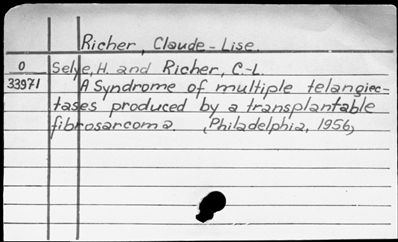 Richer, Claude-Lise.
0 Selye, H. and Richer, C.-L.
33971 A Syndrome of multiple telangiec-
tases produced by a transplantable
fibrosarcoma. (Philadelphia, 1956)